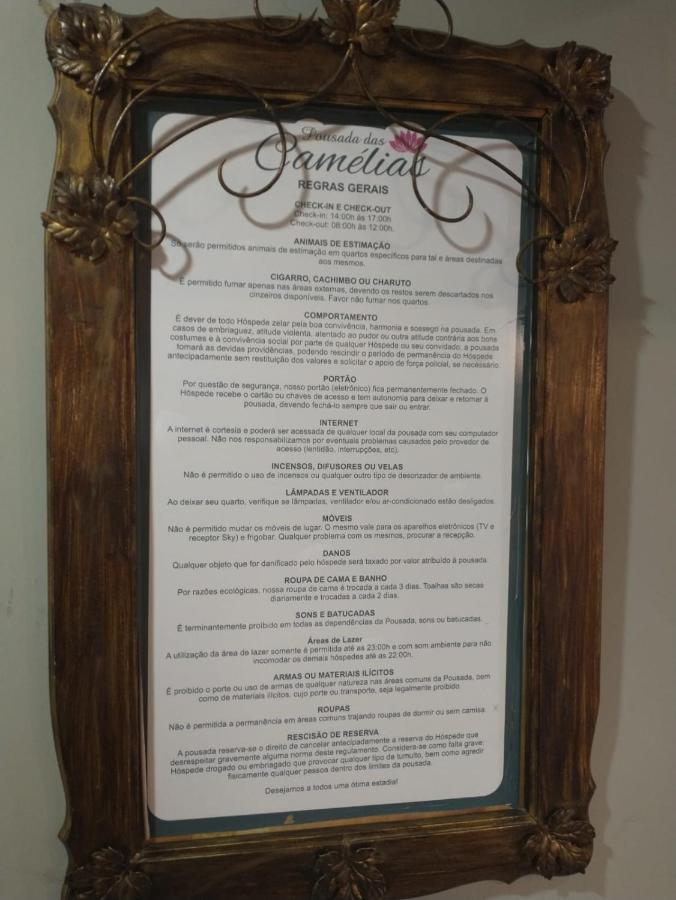 Pousada das
Camélias
REGRAS GERAIS
CHECK-IN E CHECK-OUT
Check-in: 14:00h às 17:00h
Check-out: 08:00h às 12:00h.
ANIMAIS DE ESTIMAÇÃO
Só serão permitidos animais de estimação em quartos específicos para tal e áreas destinadas
aos mesmos.
CIGARRO, CACHIMBO OU CHARUTO
É permitido fumar apenas nas áreas externas, devendo os restos serem descartados nos
cinzeiros disponíveis. Favor não fumar nos quartos.
COMPORTAMENTO
É dever de todo Hóspede zelar pela boa convivência, harmonia e sossego na pousada. Em
casos de embriaguez, atitude violenta, atentado ao pudor ou outra atitude contrária aos bons
costumes e à convivência social por parte de qualquer Hóspede ou seu convidado, a pousada
tomará as devidas providências, podendo rescindir o período de permanência do Hóspede
antecipadamente sem restituição dos valores e solicitar o apoio de força policial, se necessário.
PORTÃO
Por questão de segurança, nosso portão (eletrônico) fica permanentemente fechado. O
Hóspede recebe o cartão ou chaves de acesso e tem autonomia para deixar e retornar à
pousada, devendo fechá-lo sempre que sair ou entrar.
INTERNET
A internet é cortesia e poderá ser acessada de qualquer local da pousada com seu computador
pessoal. Não nos responsabilizamos por eventuais problemas causados pelo provedor de
acesso (lentidão, interrupções, etc).
INCENSOS, DIFUSORES OU VELAS
Não é permitido o uso de incensos ou qualquer outro tipo de desorizador de ambiente.
LÂMPADAS E VENTILADOR
Ao deixar seu quarto, verifique se lâmpadas, ventilador e/ou ar-condicionado estão desligados.
MÓVEIS
Não é permitido mudar os móveis de lugar. O mesmo vale para os aparelhos eletrônicos (TV e
receptor Sky) e frigobar. Qualquer problema com os mesmos, procurar a recepção.
DANOS
Qualquer objeto que for danificado pelo hóspede será taxado por valor atribuído à pousada.
ROUPA DE CAMA E BANHO
Por razões ecológicas, nossa roupa de cama é trocada a cada 3 dias. Toalhas são secas
diariamente e trocadas a cada 2 dias.
SONS E BATUCADAS
É terminantemente proibido em todas as dependências da Pousada, sons ou batucadas.
Áreas de Lazer
A utilização da área de lazer somente é permitida até as 23:00h e com som ambiente para não
incomodar os demais hóspedes até as 22:00h.
ARMAS OU MATERIAIS ILÍCITOS
É proibido o porte ou uso de armas de qualquer natureza nas áreas comuns da Pousada, bem
como de materiais ilícitos, cujo porte ou transporte, seja legalmente proibido.
ROUPAS
Não é permitida a permanência em áreas comuns trajando roupas de dormir ou sem camisa.
RESCISÃO DE RESERVA
A pousada reserva-se o direito de cancelar antecipadamente a reserva do Hóspede que
desrespeitar gravemente alguma norma deste regulamento. Considera-se como falta grave:
Hóspede drogado ou embriagado que provocar qualquer tipo de tumulto, bem como agredir
fisicamente qualquer pessoa dentro dos limites da pousada.
Desejamos a todos uma ótima estadia!